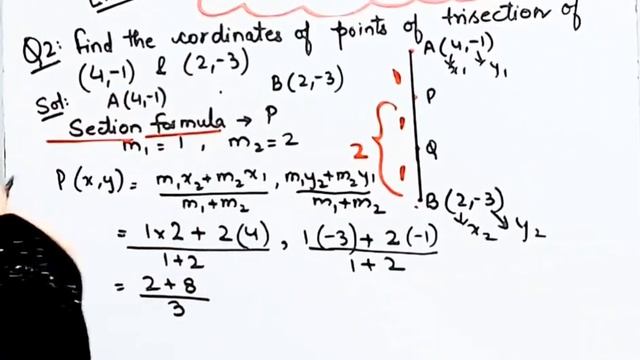 Q2: find the cordinates of points of trisection of
(4,-1) & (2,-3)
Sol: A(4,-1) B(2,-3)
Section formula → P
m₁ = 1 , m₂ = 2
P(x,y) = m₁x₂+m₂x₁/m₁+m₂ , m₁y₂+m₂y₁/m₁+m₂
= 1×2 + 2(4)/1+2 , 1(-3)+2(-1)/1+2
= 2+8/3
A(4,-1)
x₁ y₁
P
2
Q
B(2,-3)
x₂ y₂